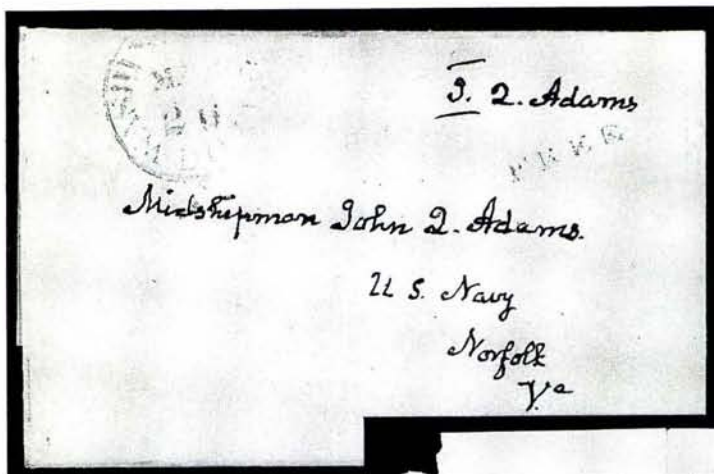 J. Q. Adams
FREE
Midshipman John Q. Adams.
U S. Navy
Norfolk
Va